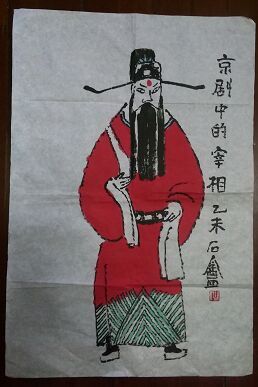 京剧中的宰相乙未石